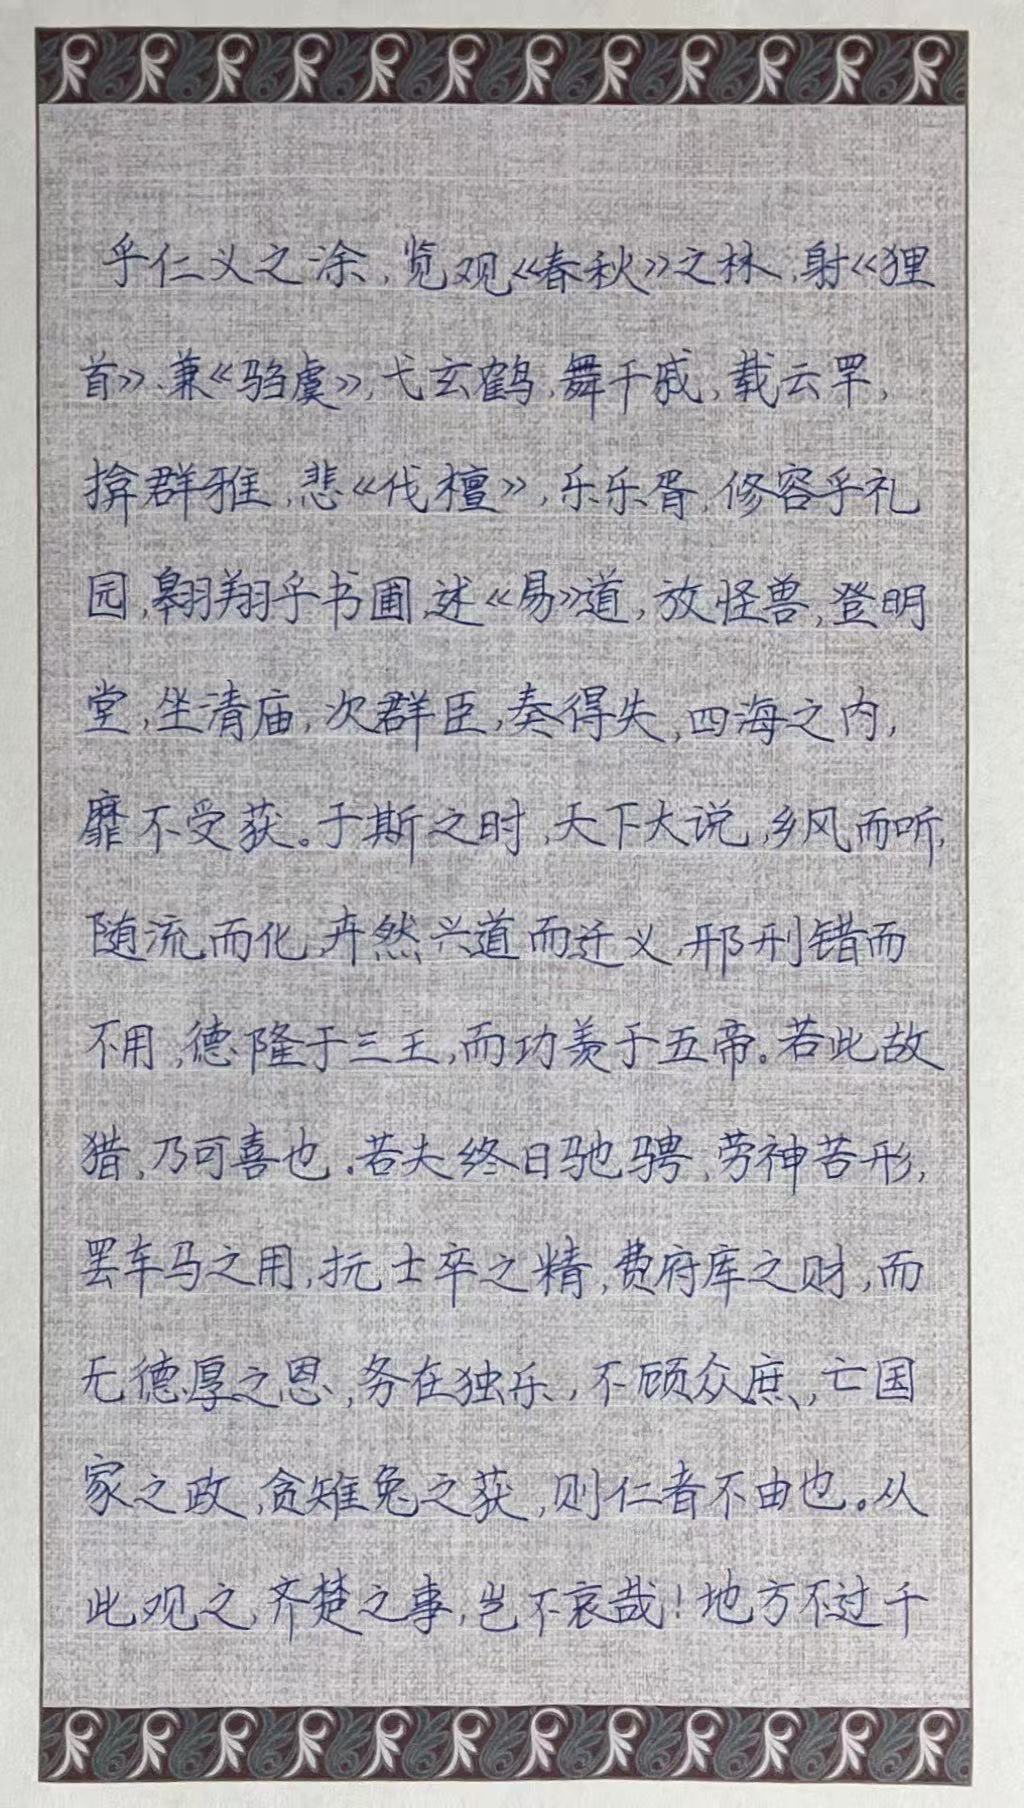 乎仁义之涂,览观《春秋》之林,射《狸
首》,兼《驺虞》,弋玄鹤,舞干戚,载云罕,
揜群雅,悲《伐檀》,乐乐胥,修容乎礼
园,翱翔乎书圃,述《易》道,放怪兽,登明
堂,坐清庙,次群臣,奏得失,四海之内,
靡不受获。于斯之时,天下大说,乡风而听,
随流而化,卉然兴道而迁义,邢刑错而
不用,德隆于三王,而功羡于五帝。若此故
猎,乃可喜也.若夫终日驰骋,劳神苦形,
罢车马之用,抏士卒之精,费府库之财,而
无德厚之恩,务在独乐,不顾众庶,亡国
家之政,贪雉兔之获,则仁者不由也。从
此观之,齐楚之事,岂不哀哉!地方不过千